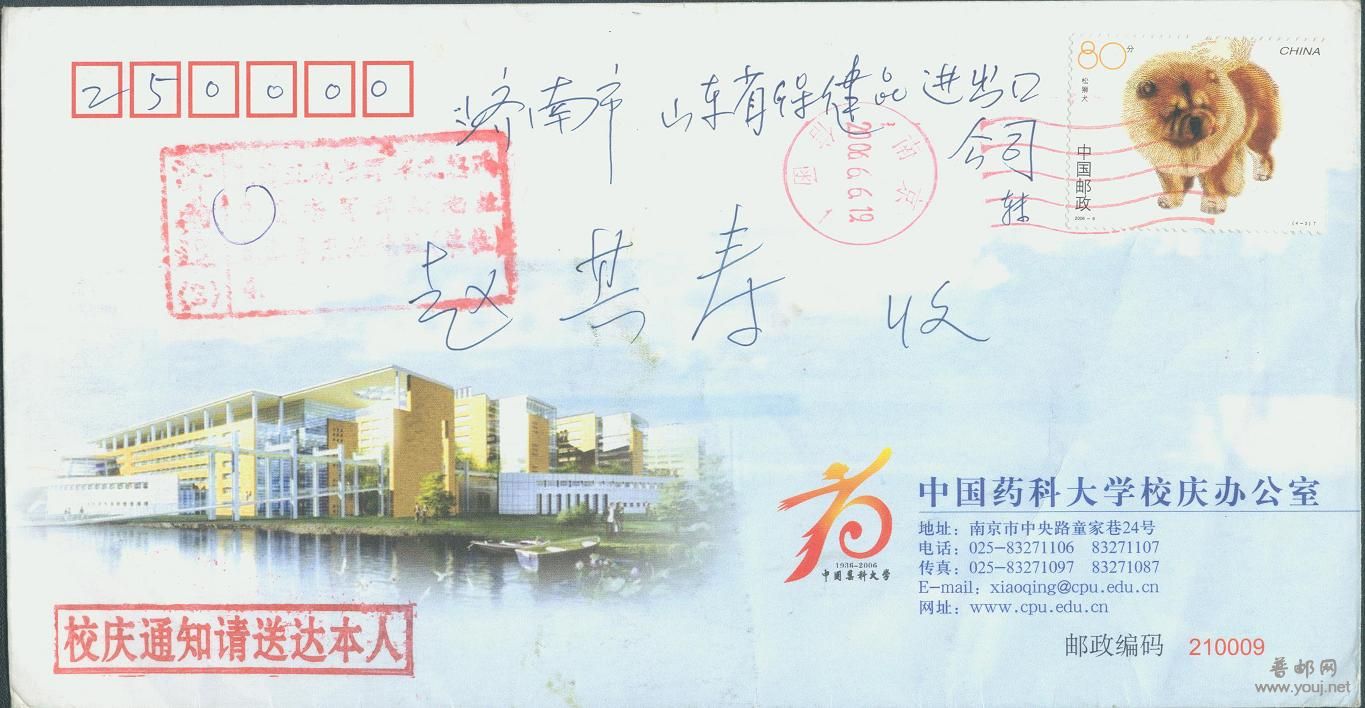 250000
济南市 山东省保健品进出口
公司
转
赵其寿 收
80分
CHINA
松狮犬
中国邮政
2006-6
(4-3)T
南京
2006.6.6.19
校庆通知请送达本人
1936-2006
中国药科大学
中国药科大学校庆办公室
地址：南京市中央路童家巷24号
电话：025-83271106 83271107
传真：025-83271097 83271087
E-mail：xiaoqing@cpu.edu.cn
网址：www.cpu.edu.cn
邮政编码 210009
普邮网
www.youj.net